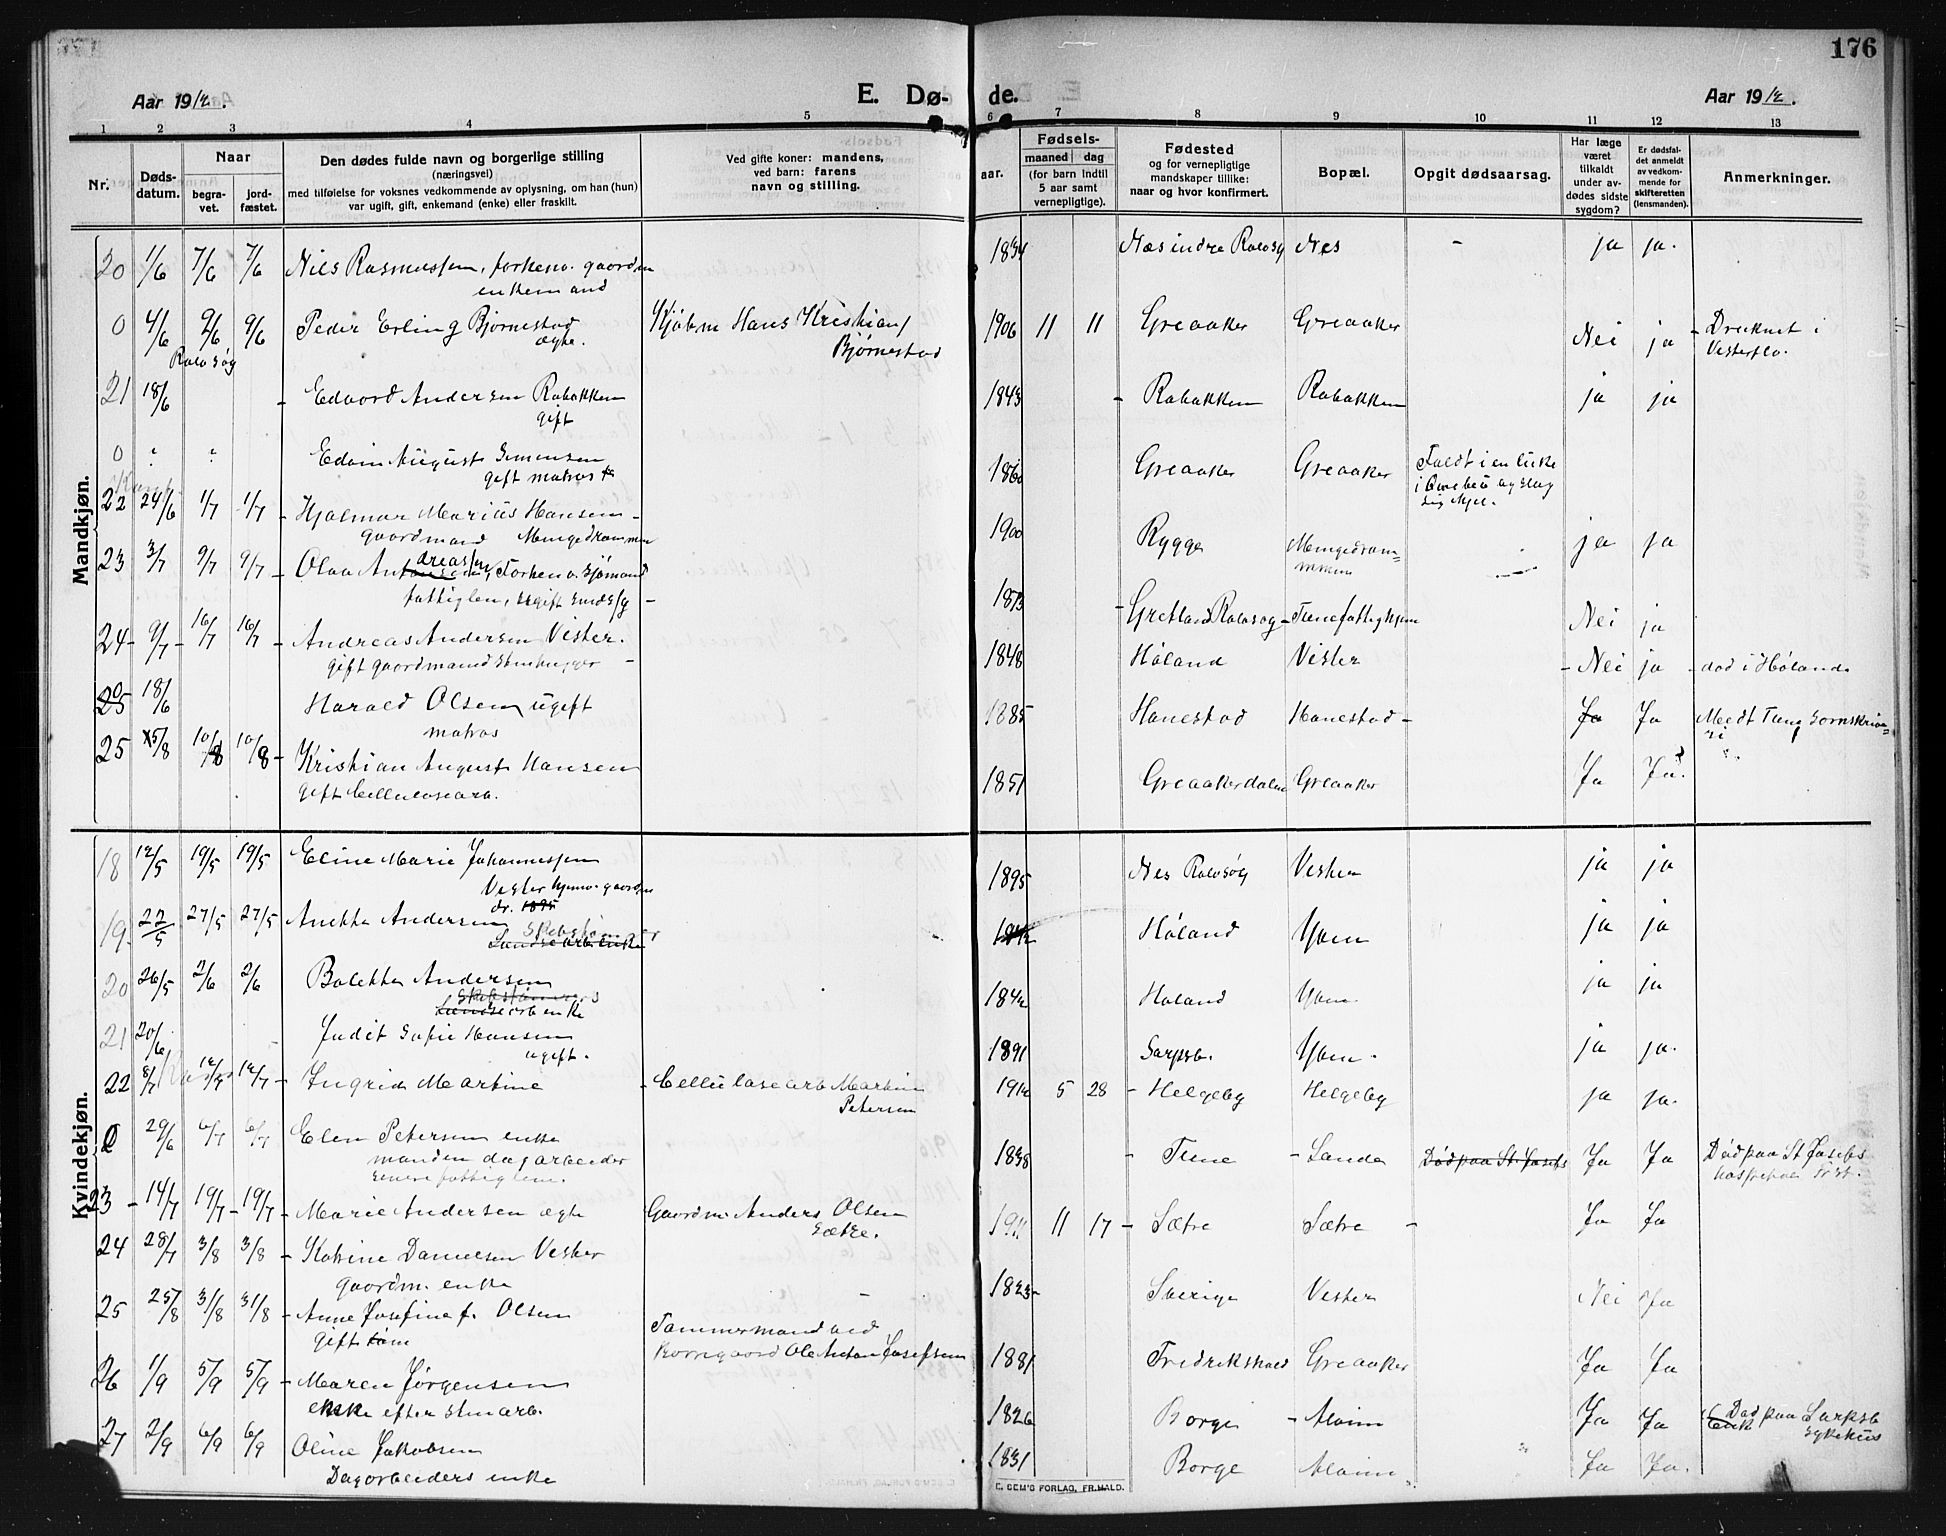 176
Aar 1912.
E. Dø-
de.
Aar 1912.
1 2 3 4 5 6 7 8 9 10 11 12 13
Nr.
Døds-
datum.
Naar
begra-
vet.
jord-
fæstet.
Den dødes fulde navn og borgerlige stilling
(næringsvei)
med tilføielse for voksnes vedkommende av oplysning, om han (hun)
var ugift, gift, enkemand (enke) eller fraskilt.
Ved gifte koner: mandens,
ved barn: farens
navn og stilling.
Fødsels-
aar.
maaned
dag
(for barn indtil
5 aar samt
vernepligtige).
Fødested
og for vernepligtige
mandskaper tillike:
naar og hvor konfirmert.
Bopæl.
Opgit dødsaarsag.
Har læge
været
tilkaldt
under av-
dødes sidste
sygdom?
Er dødsfal-
det anmeldt
av vedkom-
mende for
skifteretten
(lensmanden).
Anmerkninger.
Mandkjøn.
20 1/6 7/6 7/6 Niels Rasmussen, forhenv. gaardm 1834 Næs indre Rolvsøy Nes - ja ja.
enkemand
0 4/6 9/6 9/6 Peder Erling Bjørnestad Kjøbm Hans Kristian 1906 11 11 Greaaker Greaaker Nei ja - Druknet i
Rolvsøy ægte. Bjørnestad Vesterelv.
21 18/6 - Edvard Andersen Rabakken 1843 - Rabakken Rabakken ja ja
gift
0 " " Edvin August Simensen 1860 Greaaker Greaaker Faldt i en luke
gift matros i og slog
sig ihjel.
22 24/6 1/7 1/7 - Hjalmar Marius Hansen - 1900 Rygge Mingedram- ja ja
gaardmand Mingedrammen mmen
23 3/7 9/7 9/7 - Olaa Andreassen, Forhenv. Sjømand 1873 - Rolvsøy - Tune fattighjem Nei ja
fattiglem, ugift
24 - 9/7 - 16/7 16/7 - Andreas Andersen Vister. 1848 Høland Vister - Nei ja - død i Høland
gift gaardmand stenhugger -
0 18/6 Harald Olsen ugift 1885 Hanestad Hanestad - Ja Ja Meldt Tune Sorenskrive-
matros ri
25 5/8 10/8 10/8 - Kristian August Hansen 1851 Greaakerdalen Greaaker Ja Ja.
gift Cellulosearb.
Kvindekjøn.
18 12/5 19/5 19/5 Eline Marie Johannessen 1895 Nes Rolvsøy Vister ja ja
Vister hjemv. gaardm
dr. 1895
19. 22/5 27/5 27/5 Anette Andersen Høland Yven ja ja
20 26/5 2/6 2/6 Bolette Andersen 1842 Høland Yven ja ja
arb enke
21 20/6 Judit Sofie Hansen 1891 Sarpsb. Yven. ja ja.
ugift.
22 8/7 14/7 14/7 - Ingrid Martine - Cellulosearb Martin 1912 5 28 - Helgeby Helgeby ja ja.
Petersen
0 29/6 6/7 6/7 Elen Petersen enke 1838 - Tune - Sande Død paa St. Josefs Ja Ja Død paa St Josefs
manden dagarbeider hospital Frst.
senere fattiglem.
23 - 14/7 19/7 - 19/7 - Marie Andersen ægte Gaardm. Anders Olsen 1911 11 17 - Sætre Sætre - Ja Ja
Sætre.
24 28/7 3/8 3/8 - Katrine Danielsen Vister 1823 - Sverige Vister Nei Ja
Gaardm. enke
25 25/8 31/8 31/8 - Anne Josefine f. Olsen Tømmermand ved 1881 Fredrikshald Greaaker Ja Ja
gift Borregaard Ole Anton Josefsen
26 1/9 5/9 5/9 - Maren Jørgensen 1826 Borge - Alvim Ja Ja Død paa Sarpsb
enke efter stenarb. sykehus
27 2/9 6/9 6/9 Oline Jakobsen 1831 Borge Alvim Ja Ja.
Dagarbeiders enke
E. SEM'S FORLAG, FR.HALD.